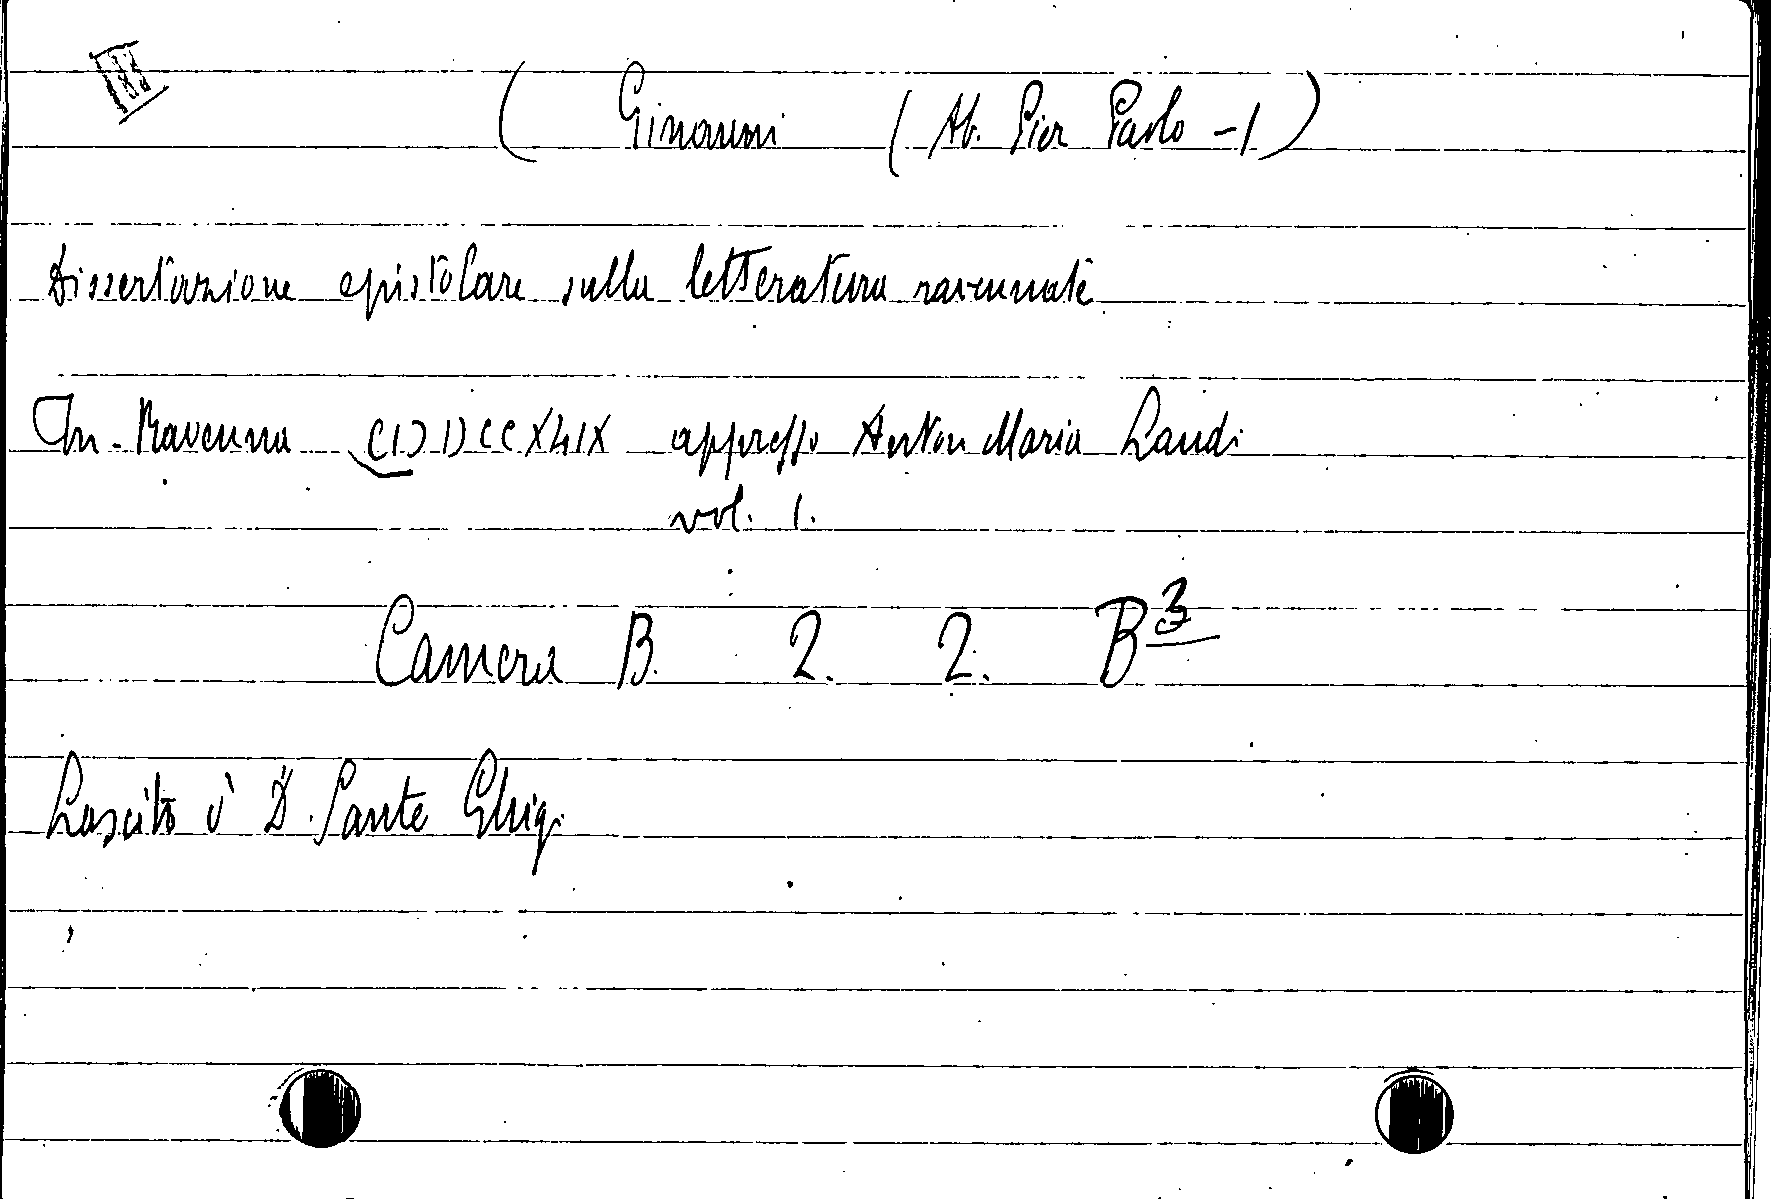 ( Ginanni ( Ab. Pier Paolo - )
Dissertazione epistolare sulla letteratura ravennate
In Ravenna CIƆ IƆCCXLIX appresso Anton Maria Landi
vol. 1.
Camera B. 2. 2. B3
Lascito D. Sante Ghigi